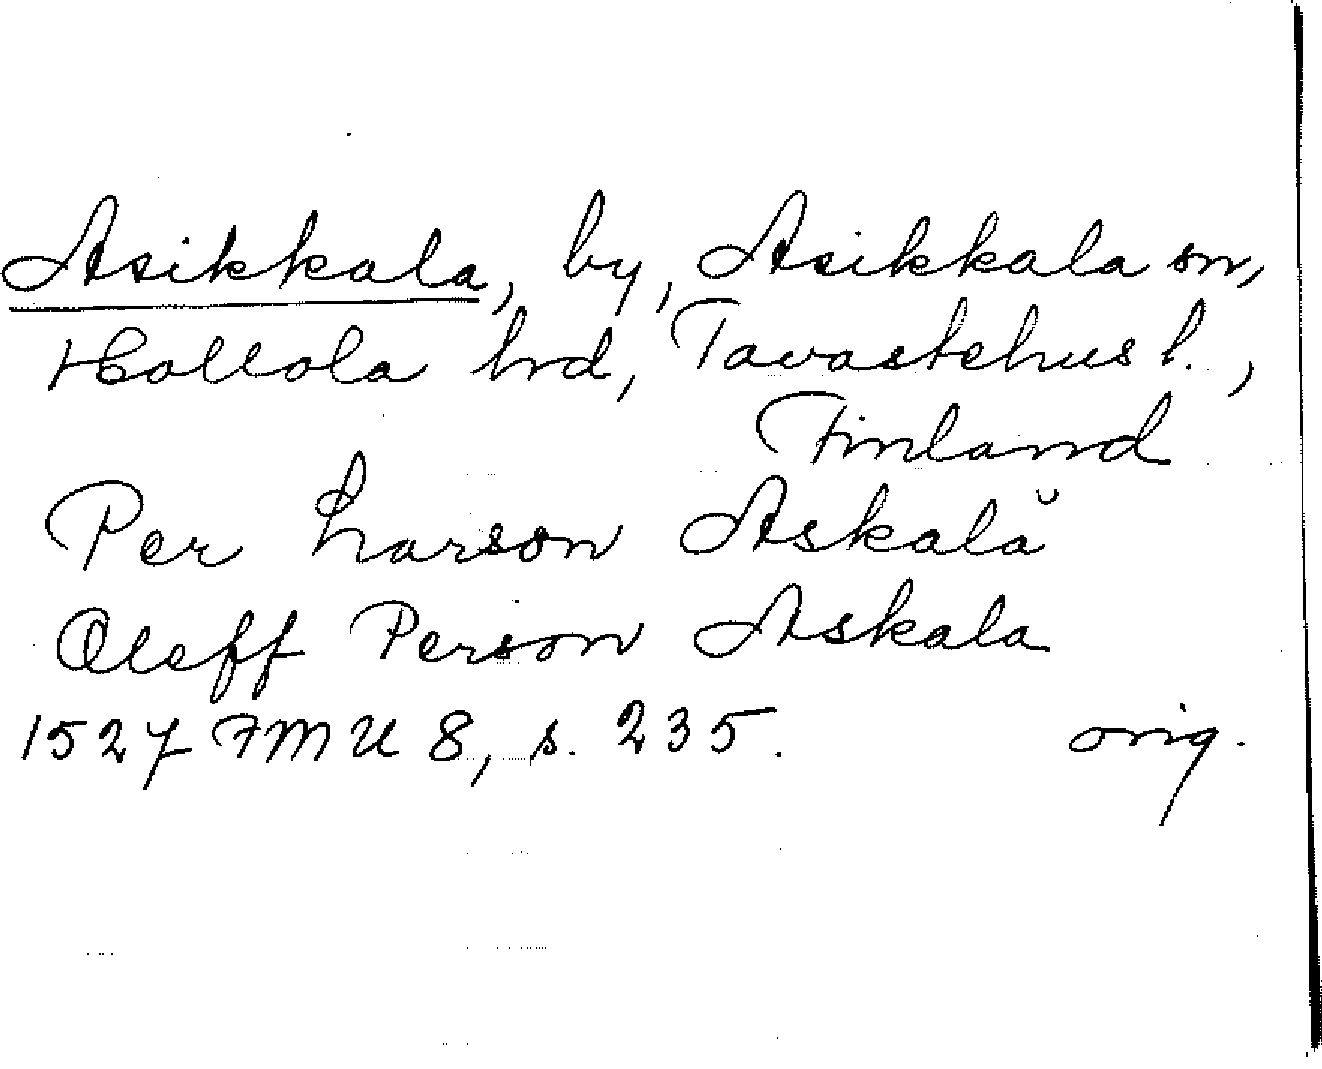 Asikkala, by, Asikkala sn,
Hollola hrd, Tavastehus l.,
Finland
Per Larson Askală
Oleff Person Askala
1527 FMU 8, s. 235. orig.